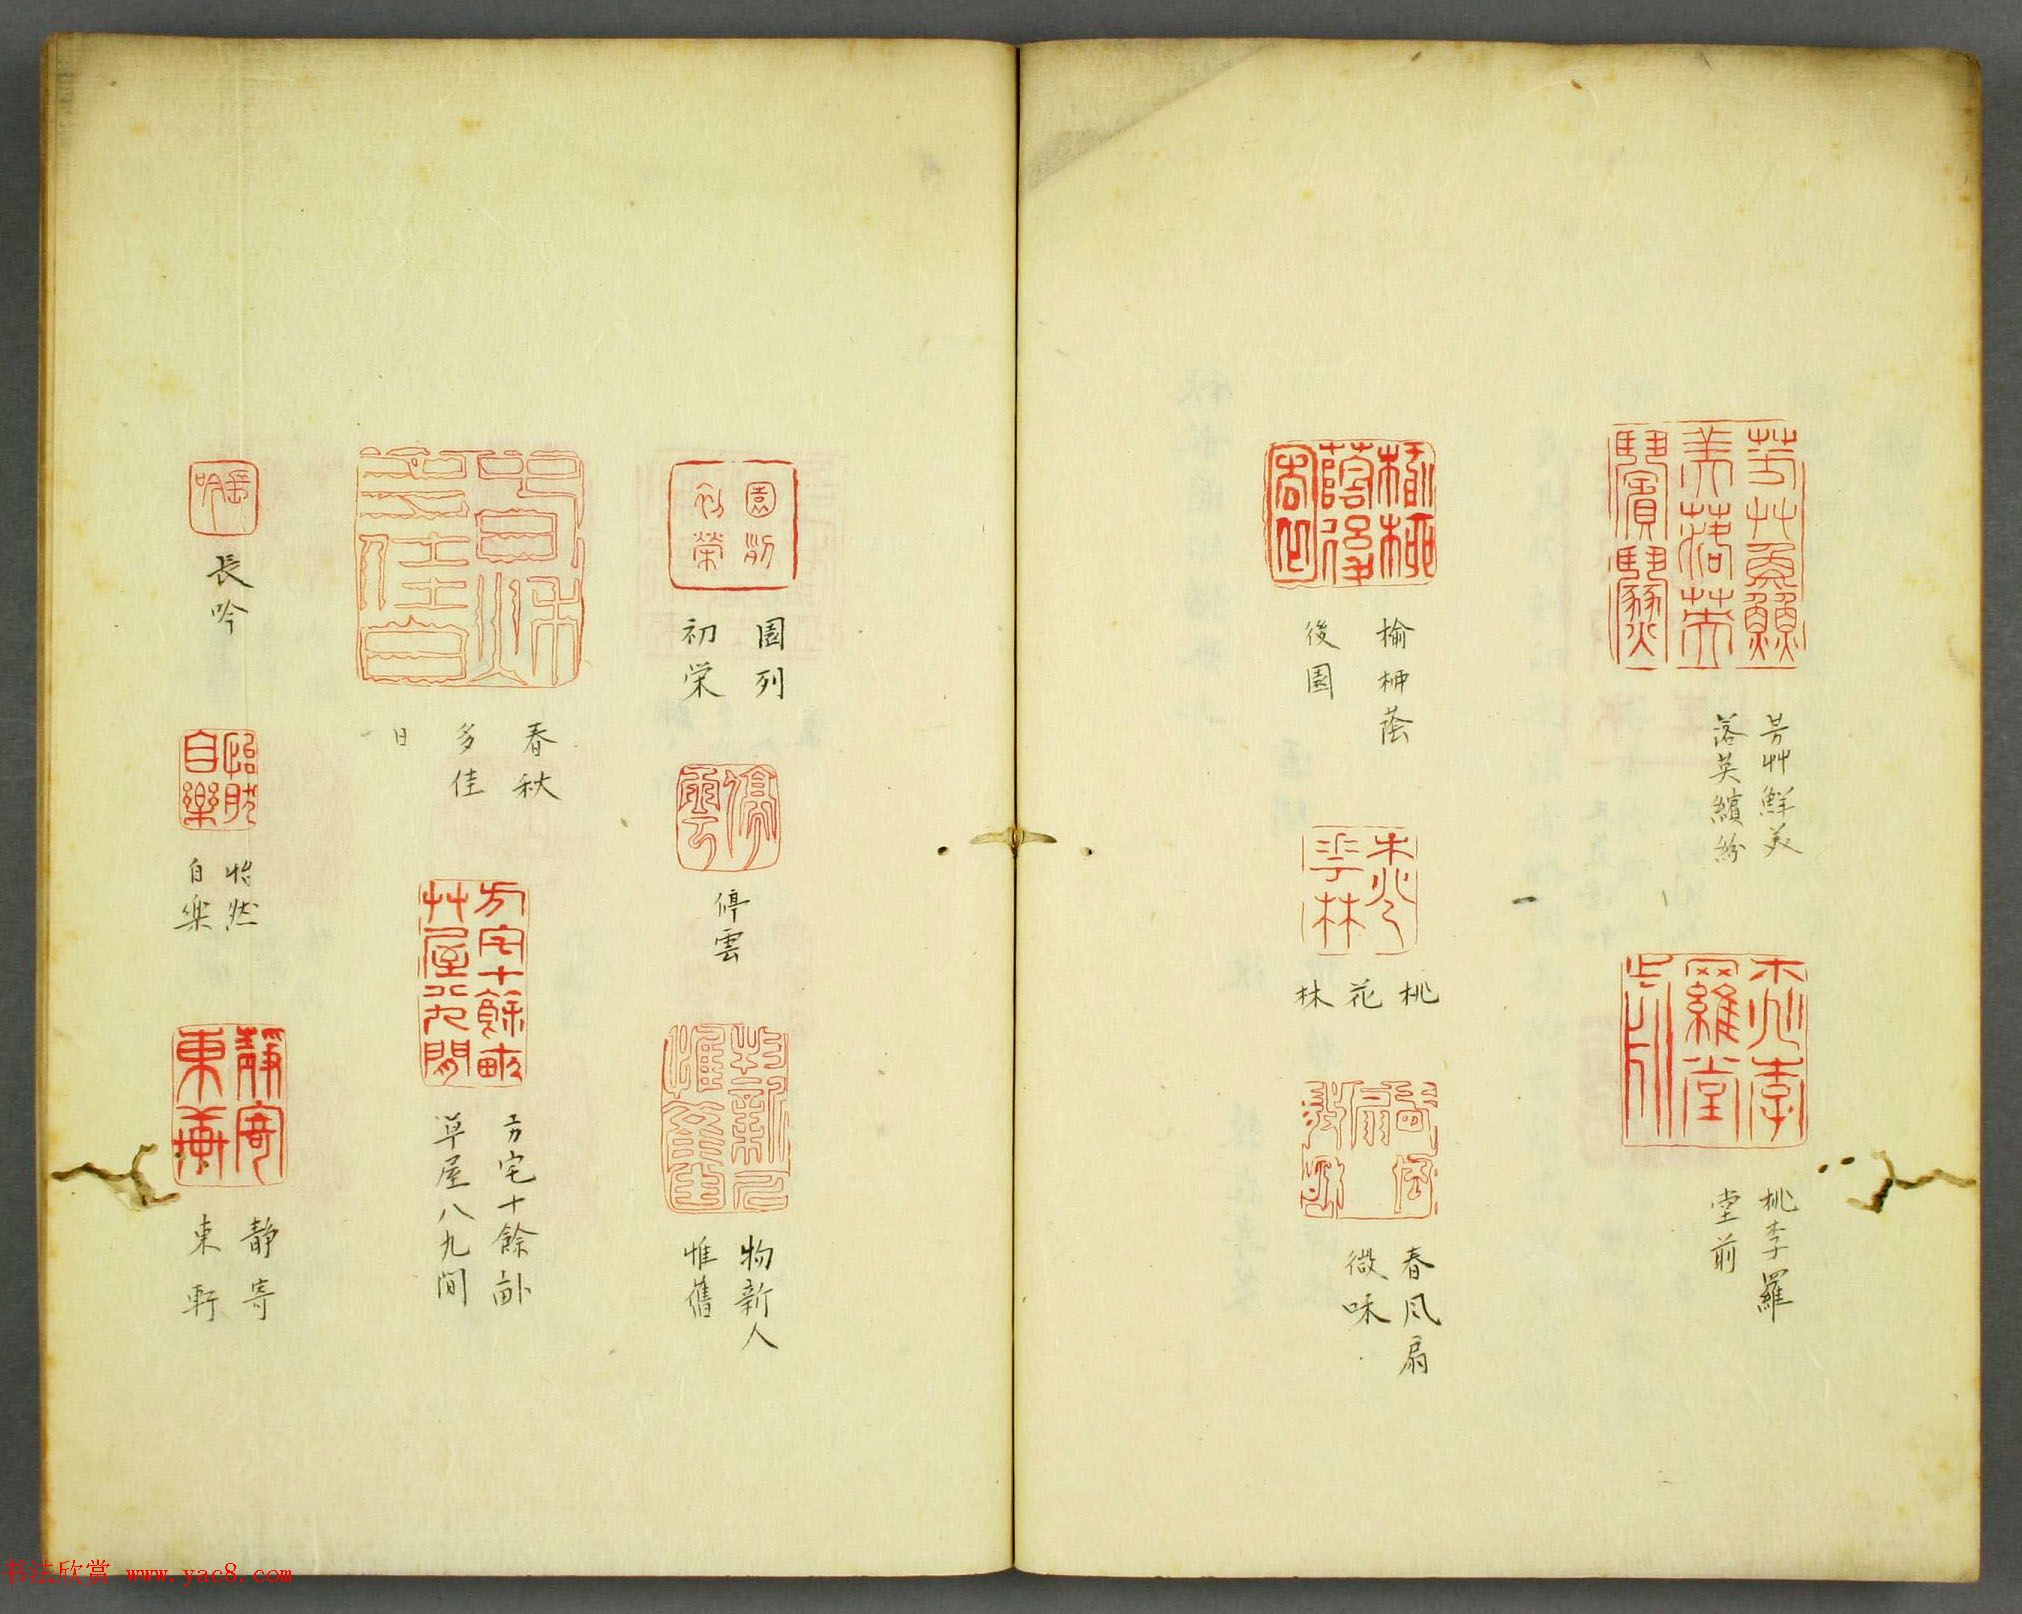 芳艸鮮美
落英繽紛
桃李羅
堂前
榆柳蔭
後園
桃花林
春風扇
微咊
園列
初栄
停雲
物新人
惟舊
春秋
多佳
日
方宅十餘畝
草屋八九間
長吟
怡然
自樂
静寄
東軒
书法欣赏 www.yac8.com